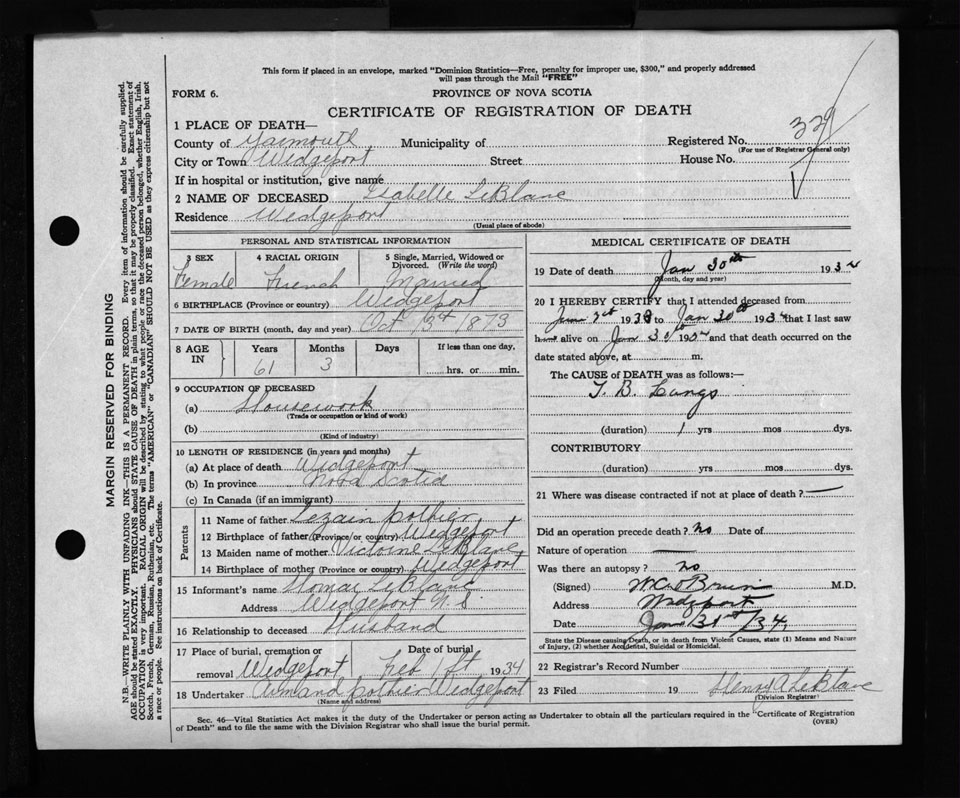 This form if placed in an envelope, marked "Dominion Statistics—Free, penalty for improper use, $300," and properly addressed
will pass through the Mail "FREE"
FORM 6.
PROVINCE OF NOVA SCOTIA
CERTIFICATE OF REGISTRATION OF DEATH
1 PLACE OF DEATH—
County of Yarmouth Municipality of
Registered No. 339
(For use of Registrar General only)
City or Town Wedgeport Street House No.
If in hospital or institution, give name
2 NAME OF DECEASED Isabelle LeBlanc
Residence Wedgeport
(Usual place of abode)
PERSONAL AND STATISTICAL INFORMATION
3 SEX 4 RACIAL ORIGIN 5 Single, Married, Widowed or Divorced. (Write the word)
Female French Married
6 BIRTHPLACE (Province or country) Wedgeport
7 DATE OF BIRTH (month, day and year) Oct 1873
8 AGE IN Years Months Days If less than one day,
61 3 hrs. or min.
9 OCCUPATION OF DECEASED
(a) Housework
(Trade or occupation or kind of work)
(b)
(Kind of industry)
10 LENGTH OF RESIDENCE (in years and months)
(a) At place of death Wedgeport
(b) In province Nova Scotia
(c) In Canada (if an immigrant)
Parents
11 Name of father Lezain pothier
12 Birthplace of father (Province or country) Wedgeport
13 Maiden name of mother Victorine LeBlanc
14 Birthplace of mother (Province or country) Wedgeport
15 Informant's name LeBlanc
Address Wedgeport N.S
16 Relationship to deceased Husband
17 Place of burial, cremation or Date of burial
removal Wedgeport Feb 1st 1934
18 Undertaker Armand pothier Wedgeport
(Name and address)
MEDICAL CERTIFICATE OF DEATH
19 Date of death Jan 30th 1934
(month, day and year)
20 I HEREBY CERTIFY that I attended deceased from
193 to Jan 30th 1934 that I last saw
h alive on Jan 193 and that death occurred on the
date stated above, at m.
The CAUSE of DEATH was as follows:—
T. B. Lungs
(duration) 1 yrs mos dys.
CONTRIBUTORY
(duration) yrs. mos. dys.
21 Where was disease contracted if not at place of death? —
Did an operation precede death? No Date of
Nature of operation —
Was there an autopsy? No
(Signed) M.D.
Address Wedgeport
Date Jan 31st/34
State the Disease causing Death, or in death from Violent Causes, state (1) Means and Nature
of Injury, (2) whether Accidental, Suicidal or Homicidal.
22 Registrar's Record Number
23 Filed 19 Henry A LeBlanc
(Division Registrar)
Sec. 46—Vital Statistics Act makes it the duty of the Undertaker or person acting as Undertaker to obtain all the particulars required in the "Certificate of Registration
of Death" and to file the same with the Division Registrar who shall issue the burial permit.
(OVER)
MARGIN RESERVED FOR BINDING
N.B.—WRITE PLAINLY WITH UNFADING INK—THIS IS A PERMANENT RECORD. Every item of information should be carefully supplied.
AGE should be stated EXACTLY. PHYSICIANS should STATE CAUSE OF DEATH in plain terms, so that it may be properly classified. Exact statement of
OCCUPATION is very important. RACIAL ORIGIN will be described by stating to what people or race the deceased person belonged, whether English, Irish,
Scotch, French, German, Russian, Ruthenian, etc. The terms "AMERICAN" or "CANADIAN" SHOULD NOT BE USED as they express citizenship but not
a race or people. See instructions on back of Certificate.